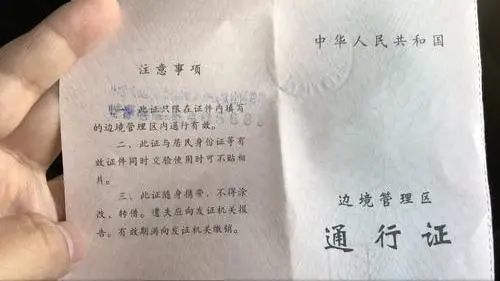 注意事项
一、此证只限在证件内填写
的边境管理区内通行有效。
二、此证与居民身份证等有
效证件同时交验使用时可不贴
相片。
三、此证随身携带，不得涂
改、转借。遗失应向发证机关报
告。有效期满向发证机关缴销。
中华人民共和国
边境管理区
通行证